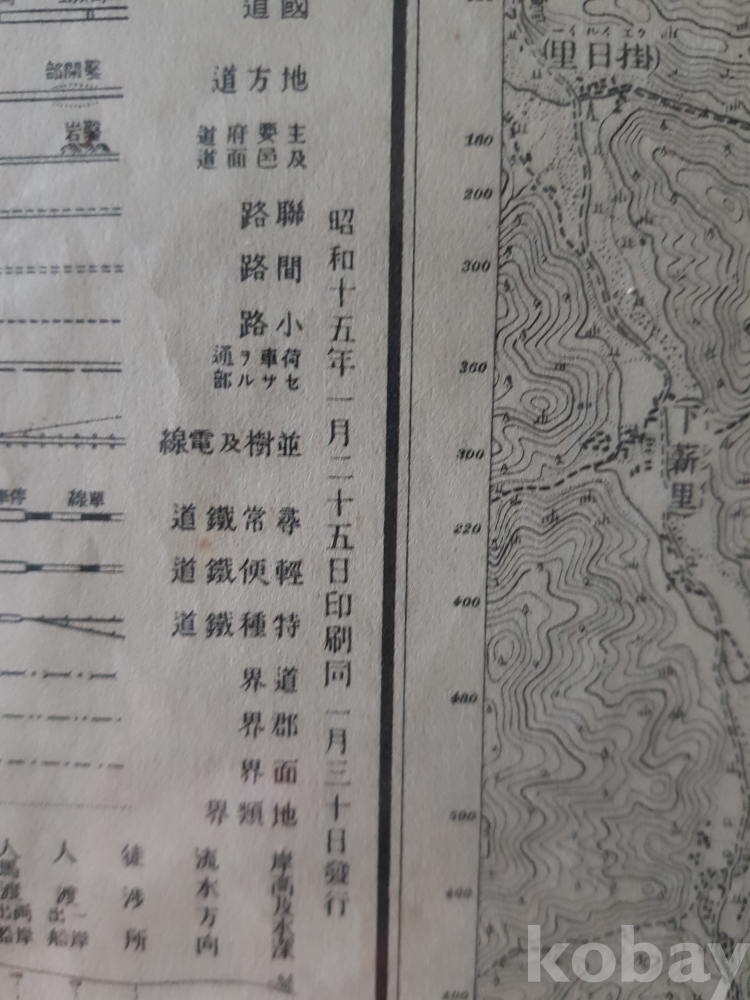 國道
地方道
鑿開部
主要府
及邑面道
鑿岩
聯路
間路
小路
荷車ヲ通
セサル部
並樹及電線
尋常鐵道
單線
輕便鐵道
特種鐵道
道界
郡界
面界
地類界
岸高及水深
流水方向
徒涉所
人渡
一岸
出船
昭和十五年一月二十五日印刷同一月三十日發行
掛日里
クエイルイー
下薪里
180
200
300
360
300
220
400
480
500
400
400
kobay